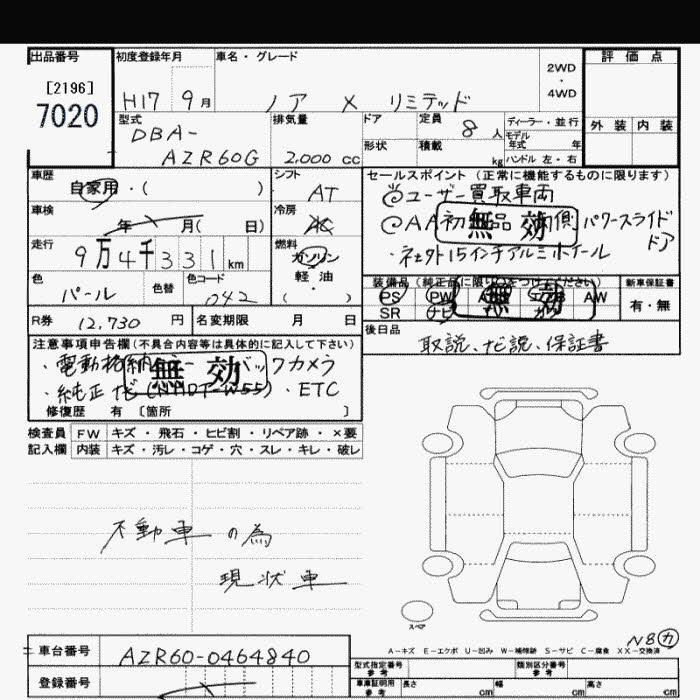 出品番号 初度登録年月 車名・グレード 評価点
[2196]
7020
H17 9月 ノア X リミテッド 2WD・4WD
型式 排気量 ドア 定員 8人 ディーラー・並行 外装 内装
DBA-
AZR60G 2,000 cc 形状 積載 kg モデル年式 年 ハンドル 左・右
車歴 シフト セールスポイント (正常に機能するものに限ります)
自家用・( ) AT ユーザー買取車両
車検 年 月( 日) 冷房 AC AA初 品 両側パワースライドドア
無効
走行 9万4千331km 燃料 ガソリン 軽・油 ( )
・社外15インチアルミホイール
色 パール 色替 色コード 042
装備品 新車保証書
PS PW AW 有・無
SR ナビ
無効
R券 12,730円 名変期限 月 日 後日品
取説、ナビ説、保証書
注意事項申告欄(不具合内容等は具体的に記入して下さい)
・電動格納ミラー バックカメラ
無効
・純正ナビ(NHDT-W55)・ETC
修復歴 有 [箇所 ]
検査員 FW キズ・飛石・ヒビ割・リペア跡・×要
記入欄 内装 キズ・汚レ・コゲ・穴・スレ・キレ・破レ
不動車の為
現状車
スペア
N8カ
A-キズ E-エクボ U-凹み W-補修跡 S-サビ C-腐食 XX-交換済
車台番号 AZR60-0464840
型式指定番号 参考 類別区分番号 参考
登録番号 車庫証明用 参考 長さ cm 幅 cm 高さ cm